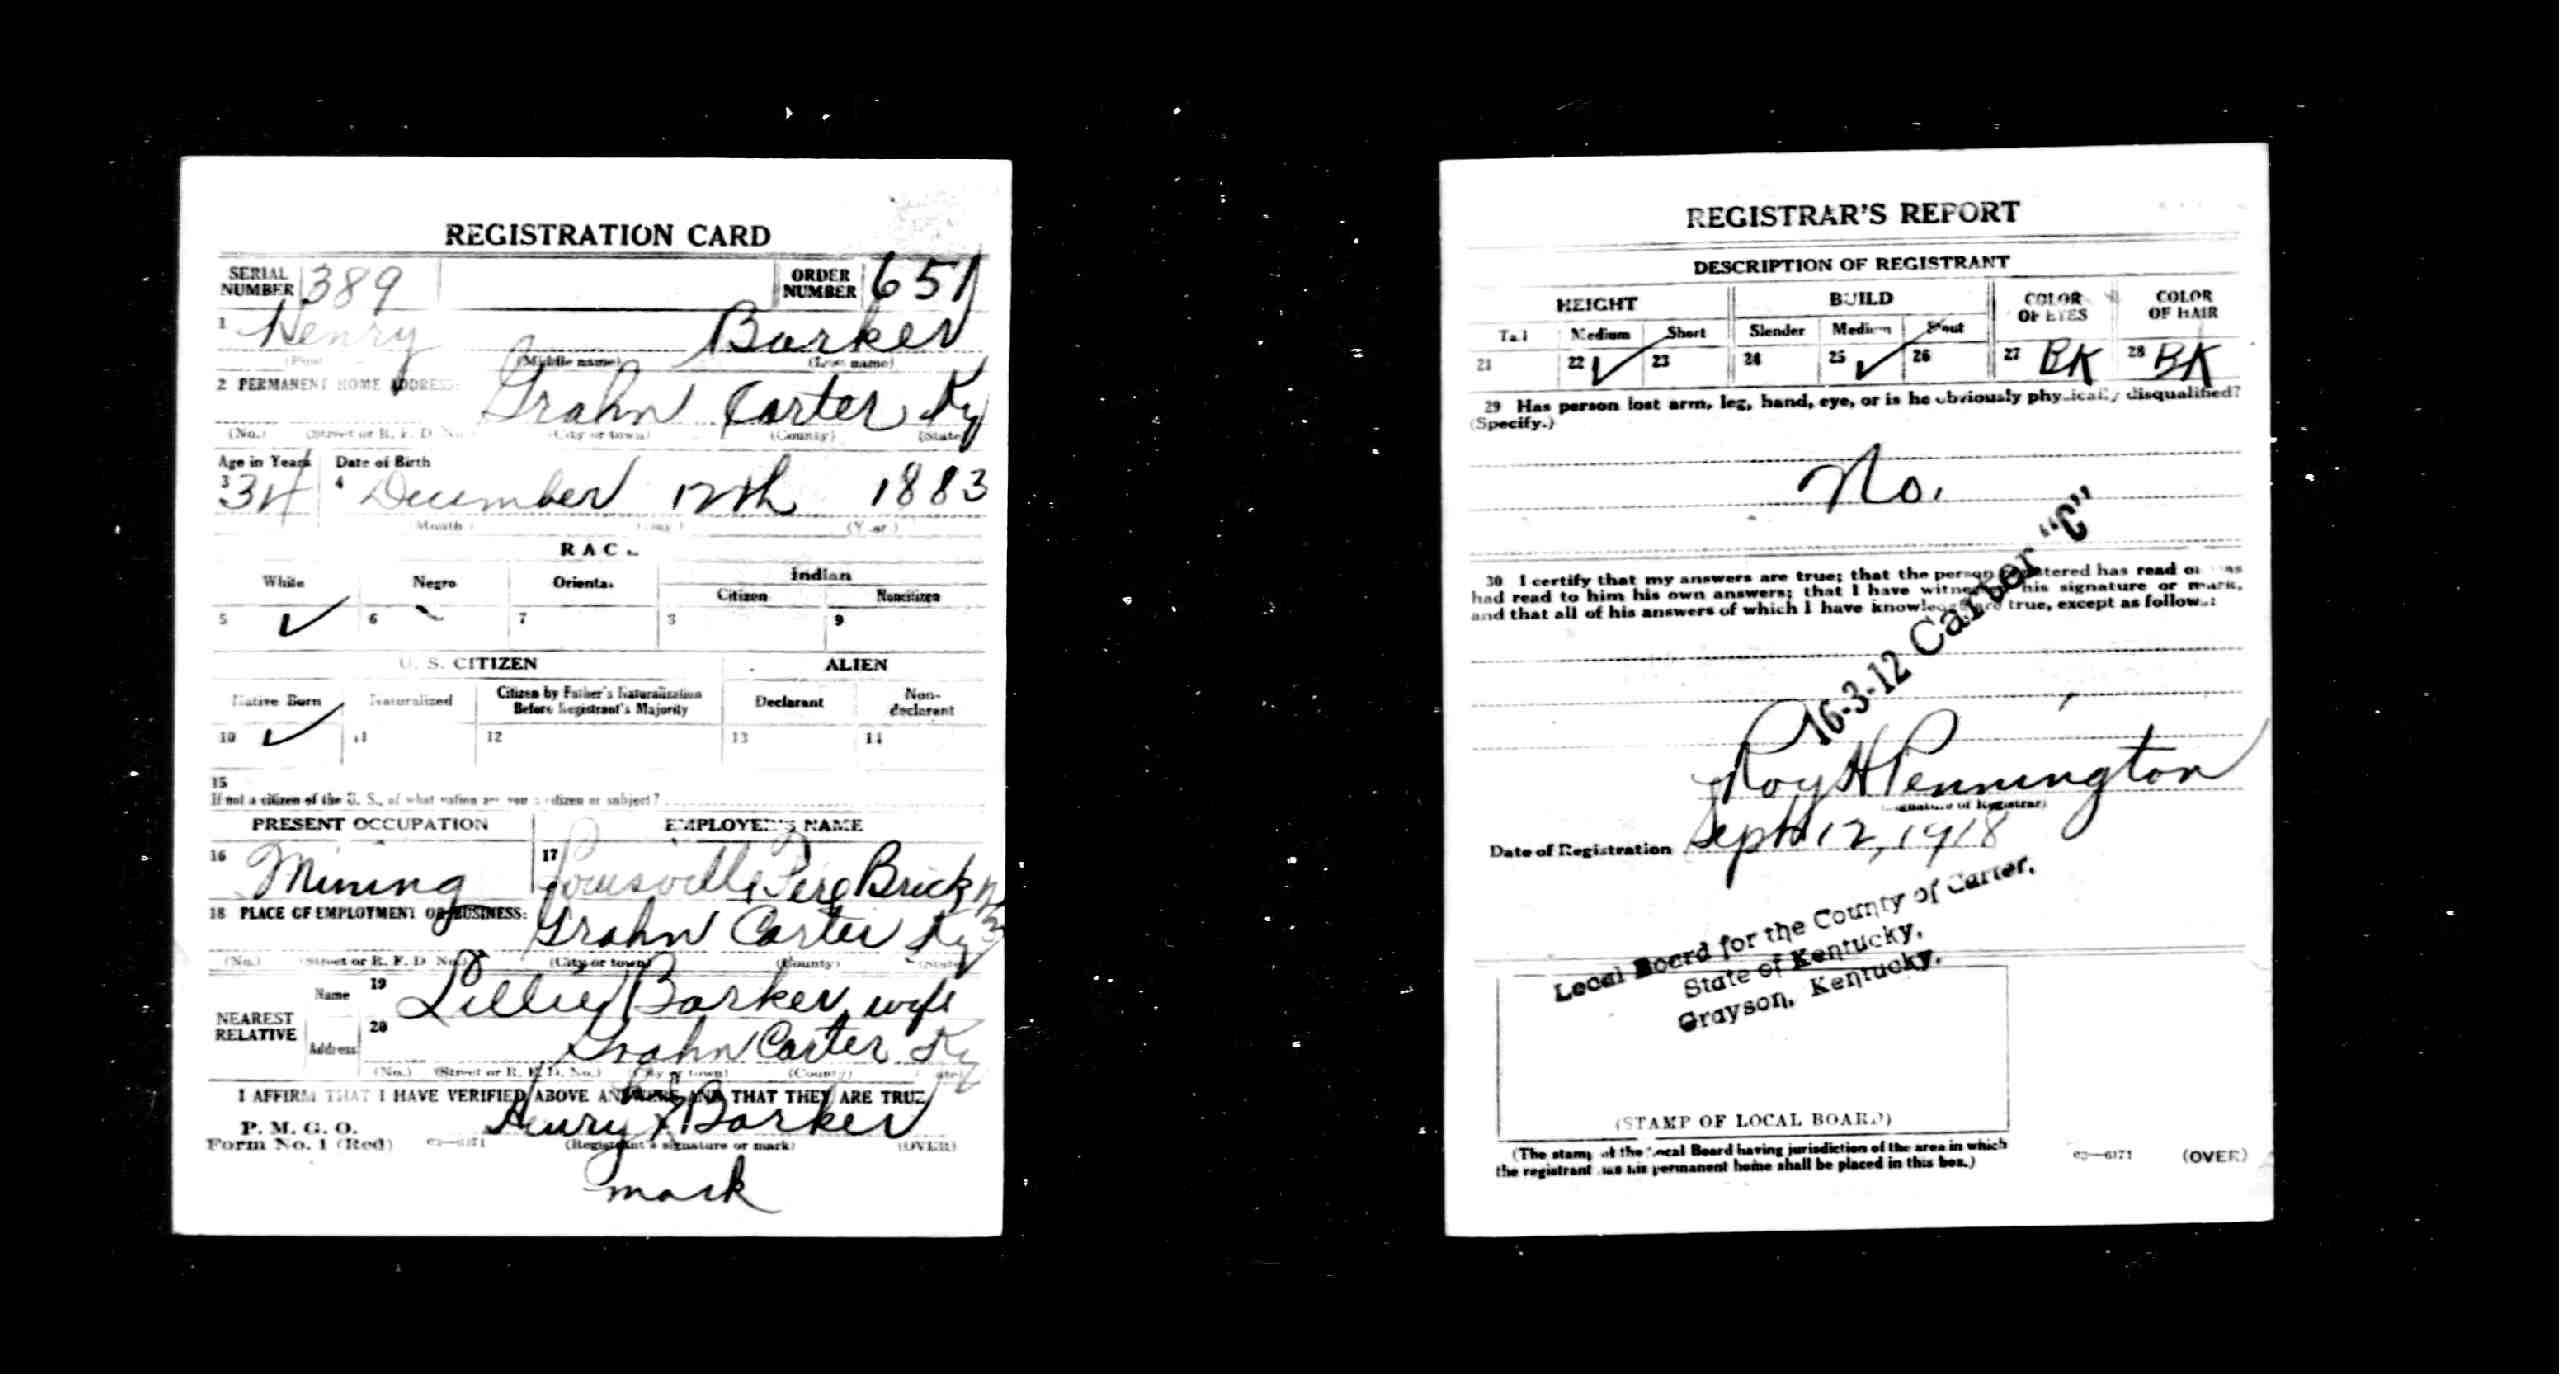 REGISTRATION CARD
SERIAL NUMBER 389 ORDER NUMBER 651
1 Henry Barker
(First (Middle name) (Last name)
2 PERMANENT HOME ADDRESS:
Grahn Carter Ky
(No.) (Street or R. F. D. No.) (City or town) (County) (State)
Age in Years Date of Birth
3 34 4 December 12th 1883
Month (Day) (Year)
RACE
White Negro Oriental Indian
Citizen Noncitizen
5 ✓ 6 7 8 9
U. S. CITIZEN ALIEN
Native Born Naturalized Citizen by Father's Naturalization Before Registrant's Majority Declarant Non-declarant
10 ✓ 11 12 13 14
15
If not a citizen of the U. S., of what nation are you a citizen or subject?
PRESENT OCCUPATION EMPLOYER'S NAME
16 Mining 17 Louisville Fire Brick
18 PLACE OF EMPLOYMENT OR BUSINESS:
Grahn Carter Ky
(No.) (Street or R. F. D. No.) (City or town) (County) (State)
NEAREST RELATIVE
Name 19 Lillie Barker, wife
Address 20 Grahn Carter Ky
(No.) (Street or R. F. D. No.) (City or town) (County) (State)
I AFFIRM THAT I HAVE VERIFIED ABOVE ANSWERS AND THAT THEY ARE TRUE
P. M. G. O.
Form No. 1 (Red)
Henry X Barker
(Registrant's signature or mark) (OVER)
mark
REGISTRAR'S REPORT
DESCRIPTION OF REGISTRANT
HEIGHT BUILD COLOR OF EYES COLOR OF HAIR
Tall Medium Short Slender Medium Stout
21 22 ✓ 23 24 25 ✓ 26 27 BK 28 BK
29 Has person lost arm, leg, hand, eye, or is he obviously physically disqualified?
(Specify.)
No.
30 I certify that my answers are true; that the person registered has read or has
had read to him his own answers; that I have witnessed his signature or mark,
and that all of his answers of which I have knowledge are true, except as follows:
16-3-12 Carter "C"
Roy H Pennington
(Signature of Registrar)
Date of Registration Sept 12, 1918
Local Board for the County of Carter,
State of Kentucky,
Grayson, Kentucky.
(STAMP OF LOCAL BOARD)
(The stamp of the Local Board having jurisdiction of the area in which
the registrant has his permanent home shall be placed in this box.)
03—6171 (OVER)